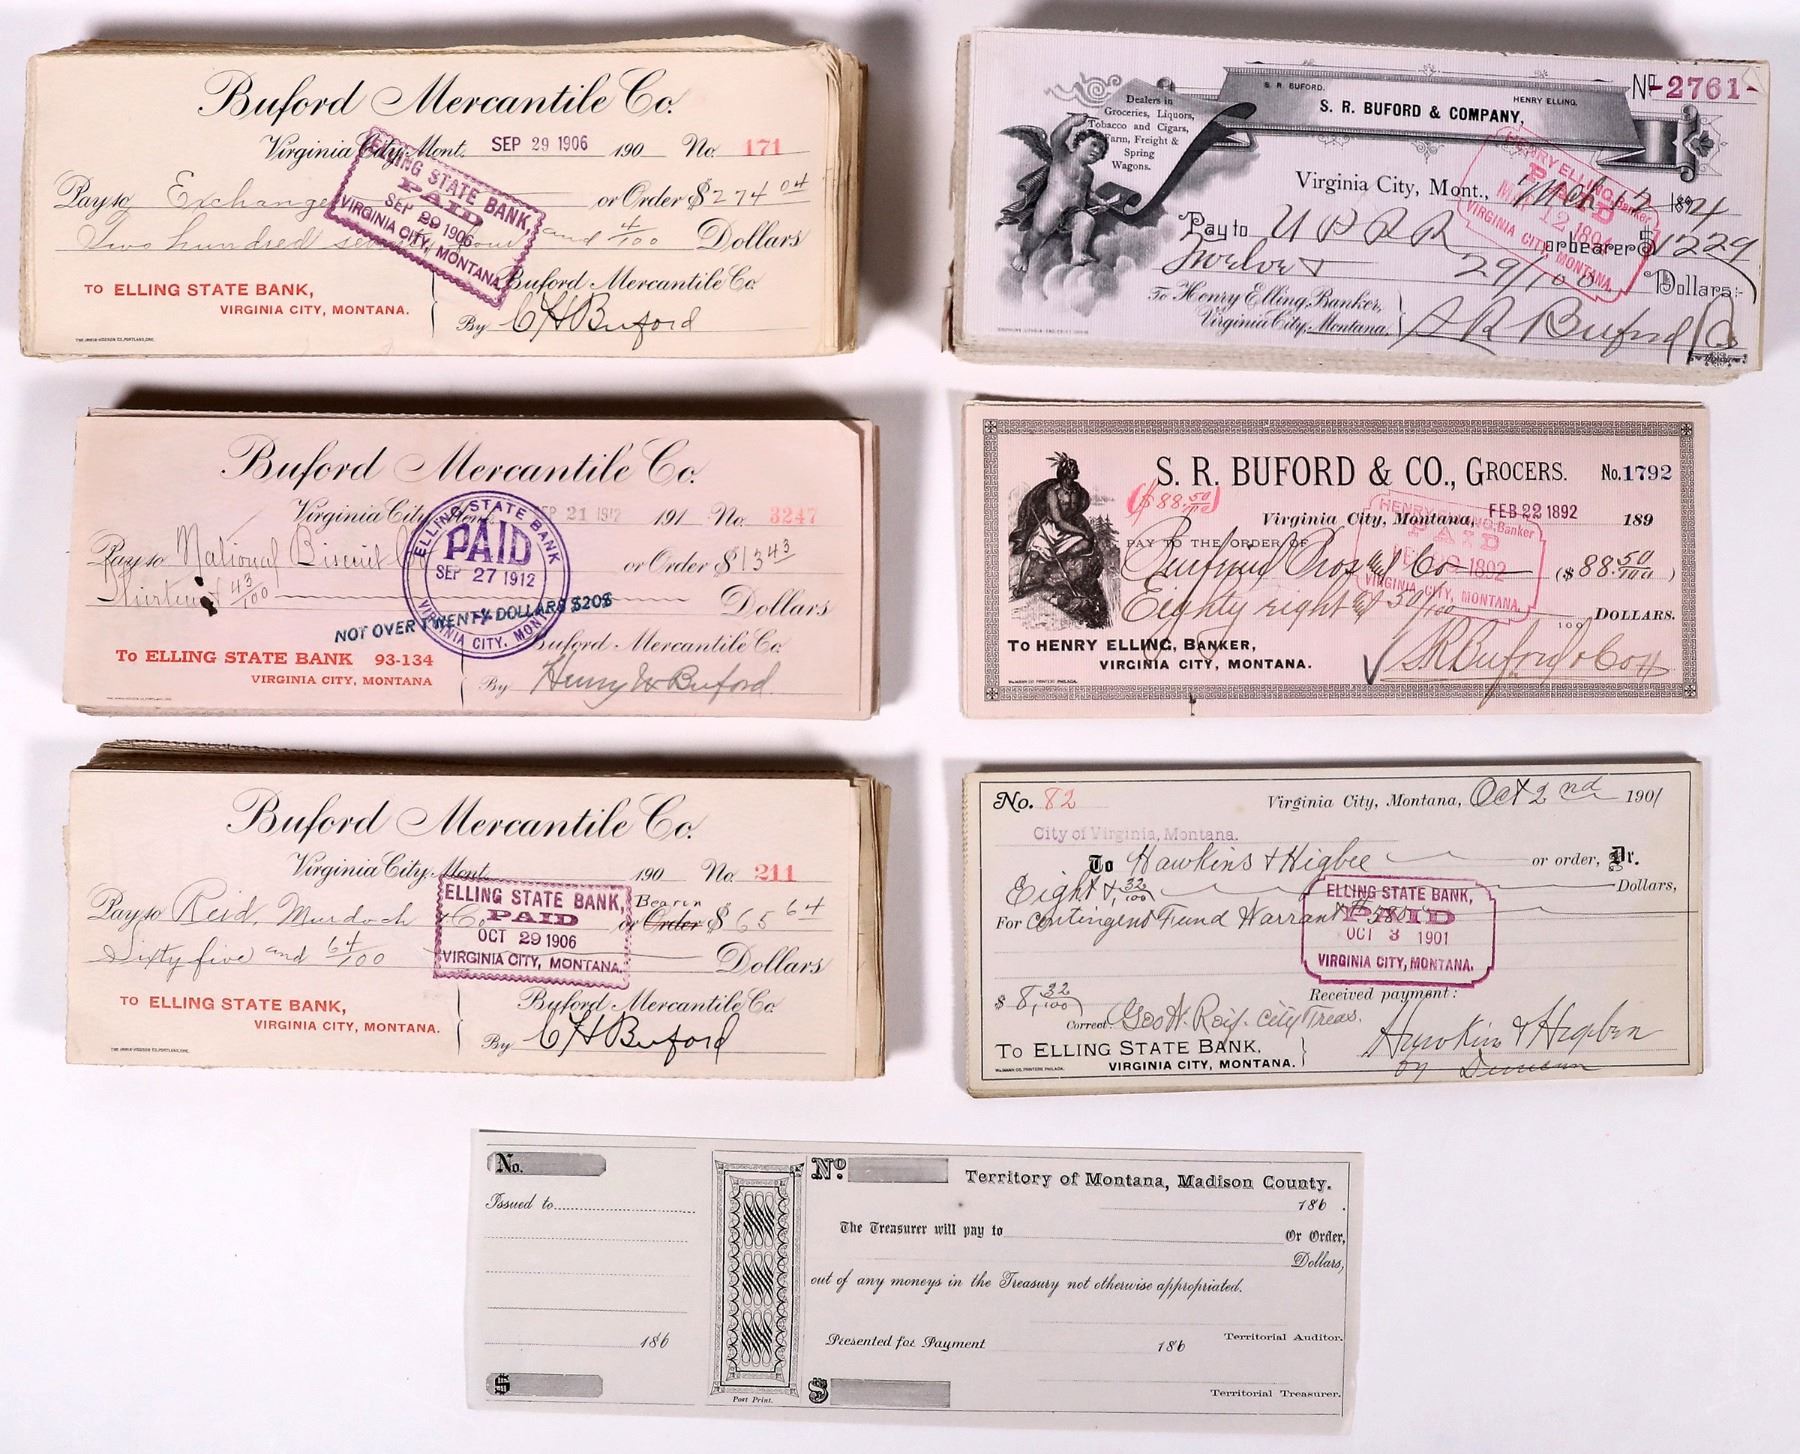 Buford Mercantile Co.
Virginia City, Mont. SEP 29 1906 190 No. 171
Pay to Exchange or Order $ 274 04
Two hundred seventy four and 4/100 Dollars
TO ELLING STATE BANK,
VIRGINIA CITY, MONTANA.
Buford Mercantile Co.
By C H Buford
ELLING STATE BANK,
PAID
SEP 29 1906
VIRGINIA CITY, MONTANA
S. R. BUFORD. HENRY ELLING.
S. R. BUFORD & COMPANY,
No 2761
Dealers in
Groceries, Liquors,
Tobacco and Cigars,
Farm, Freight &
Spring
Wagons.
Virginia City, Mont., Mch 12 1894
Pay to U P R R or bearer $ 12 29
Twelve & 29/100 Dollars
To Henry Elling, Banker,
Virginia City, Montana.
S R Buford & Co
HENRY ELLING, Banker
PAID
MAR 12 1894
VIRGINIA CITY, MONTANA.
Buford Mercantile Co.
Virginia City, Mont. SEP 21 1912 191 No. 3247
Pay to National Biscuit Co or Order $ 13 43
Thirteen & 43/100 Dollars
NOT OVER TWENTY DOLLARS $20$
To ELLING STATE BANK 93-134
VIRGINIA CITY, MONTANA
Buford Mercantile Co.
By Henry W Buford
ELLING STATE BANK
PAID
SEP 27 1912
VIRGINIA CITY, MONT.
S. R. BUFORD & CO., GROCERS. No. 1792
($88.50/100)
Virginia City, Montana, FEB 22 1892 189
PAY TO THE ORDER OF
($ 88.50/100)
Eighty eight & 50/100 DOLLARS.
TO HENRY ELLING, BANKER,
VIRGINIA CITY, MONTANA.
S R Buford & Co
HENRY ELLING, Banker
PAID
1892
VIRGINIA CITY, MONTANA.
Buford Mercantile Co.
Virginia City, Mont. 190 No. 211
Pay to Reid, Murdoch & Co or Order Bearer $ 65 64
Sixty five and 64/100 Dollars
TO ELLING STATE BANK,
VIRGINIA CITY, MONTANA.
Buford Mercantile Co.
By C H Buford
ELLING STATE BANK,
PAID
OCT 29 1906
VIRGINIA CITY, MONTANA.
No. 82 Virginia City, Montana, Oct 2nd 1901
City of Virginia, Montana.
To Hawkins & Higbee or order, Dr.
Eight & 32/100 Dollars,
For Contingent Fund Warrant
$ 8 32/100 Received payment:
Correct. City Treas.
TO ELLING STATE BANK,
VIRGINIA CITY, MONTANA.
ELLING STATE BANK,
PAID
OCT 3 1901
VIRGINIA CITY, MONTANA.
No.
Issued to
186
$
Post Print.
No. Territory of Montana, Madison County.
186 .
The Treasurer will pay to Or Order,
Dollars,
out of any moneys in the Treasury not otherwise appropriated.
Presented for Payment 186 Territorial Auditor.
$ Territorial Treasurer.